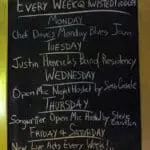 EVERY WEEK @ TWISTED
MONDAY
Chef Dave's Monday Blues Jam
TUESDAY
Justin Band Residency
WEDNESDAY
Open Mic Night Hosted by
THURSDAY
Songwriter Open Mic Hosted by Steve
FRIDAY & SATURDAY
New Live Acts Every Week!